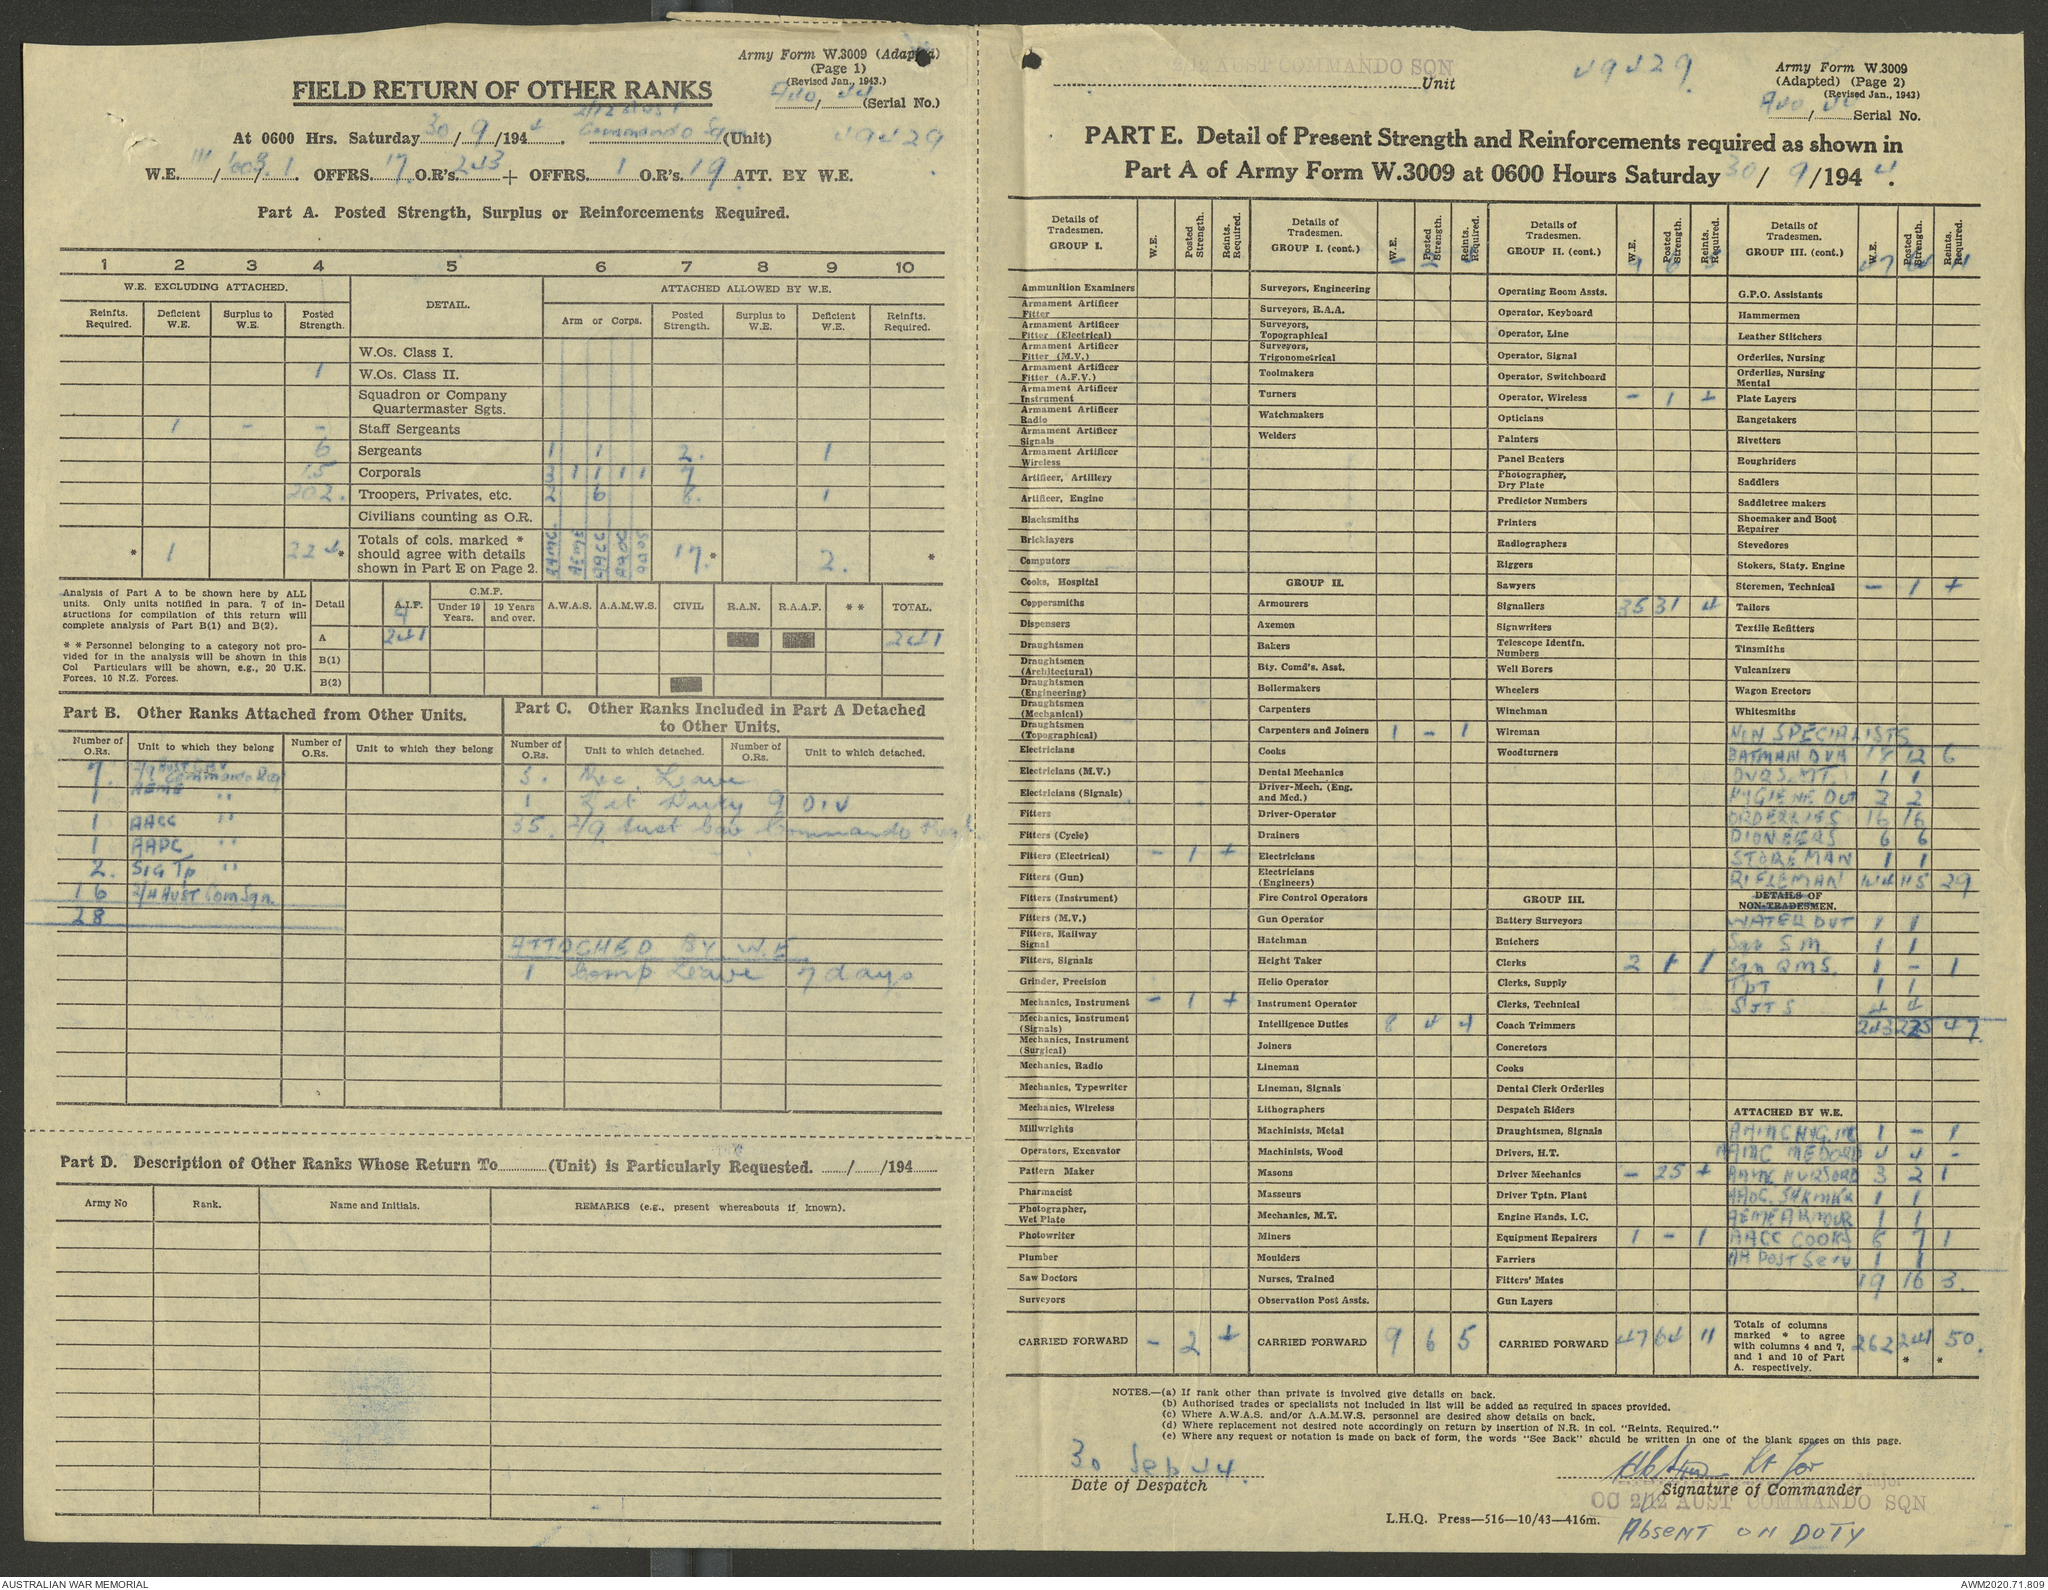 Army Form W.3009 (Adapted)
(Page 1)
(Revised Jan., 1943.)
FIELD RETURN OF OTHER RANKS
/ 44 (Serial No.)
At 0600 Hrs. Saturday 30/9/1944. 2/12 Aust Commando Sqn (Unit)
49429
W.E. III/ / .1. OFFRS. 17. O.R's. 243 + OFFRS. 1 O.R's. 19. ATT. BY W.E.
Part A. Posted Strength, Surplus or Reinforcements Required.
1 2 3 4 5 6 7 8 9 10
W.E. EXCLUDING ATTACHED. DETAIL. ATTACHED ALLOWED BY W.E.
Reinfts. Required. Deficient W.E. Surplus to W.E. Posted Strength. Arm or Corps. Posted Strength. Surplus to W.E. Deficient W.E. Reinfts. Required.
W.Os. Class I.
1 W.Os. Class II.
Squadron or Company Quartermaster Sgts.
1 - - Staff Sergeants
6 Sergeants 1 1 2. 1
15 Corporals 3 1 1 1 1 7
202. Troopers, Privates, etc. 2 6 8. 1
Civilians counting as O.R.
* 1 224* Totals of cols. marked * should agree with details shown in Part E on Page 2. AAMC AEME AACC AAOC AAPS 17.* 2. *
Analysis of Part A to be shown here by ALL units. Only units notified in para. 7 of instructions for compilation of this return will complete analysis of Part B(1) and B(2).
* * Personnel belonging to a category not provided for in the analysis will be shown in this Col Particulars will be shown, e.g., 20 U.K. Forces, 10 N.Z. Forces.
Detail A.I.F. C.M.F. Under 19 Years. 19 Years and over. A.W.A.S. A.A.M.W.S. CIVIL R.A.N. R.A.A.F. * * TOTAL.
A 241 241
B(1)
B(2)
Part B. Other Ranks Attached from Other Units.
Number of O.Rs. Unit to which they belong Number of O.Rs. Unit to which they belong
7. 2/9 Aust Cav Commando Reg
1 AEME "
1 AACC "
1 AAPC "
2. Sig Tp "
16 2/11 Aust Com Sqn.
28
Part C. Other Ranks Included in Part A Detached to Other Units.
Number of O.Rs. Unit to which detached. Number of O.Rs. Unit to which detached.
3. Rec Leave
1 Duty 9 Div
35. 2/9 Aust Cav Commando Regt
ATTACHED BY W.E
1 Comp Leave 7 days
Part D. Description of Other Ranks Whose Return To (Unit) is Particularly Requested. / /194
Army No Rank. Name and Initials. REMARKS (e.g., present whereabouts if known).
2/12 AUST COMMANDO SQN Unit
49429
Army Form W.3009
(Adapted) (Page 2)
(Revised Jan., 1943)
/ 44 Serial No.
PART E. Detail of Present Strength and Reinforcements required as shown in
Part A of Army Form W.3009 at 0600 Hours Saturday 30/9/1944.
Details of Tradesmen. GROUP I. W.E. Posted Strength. Reints. Required.
Ammunition Examiners
Armament Artificer Fitter
Armament Artificer Fitter (Electrical)
Armament Artificer Fitter (M.V.)
Armament Artificer Fitter (A.F.V.)
Armament Artificer Instrument
Armament Artificer Radio
Armament Artificer Signals
Armament Artificer Wireless
Artificer, Artillery
Artificer, Engine
Blacksmiths
Bricklayers
Computors
Cooks, Hospital
Coppersmiths
Dispensers
Draughtsmen
Draughtsmen (Architectural)
Draughtsmen (Engineering)
Draughtsmen (Mechanical)
Draughtsmen (Topographical)
Electricians
Electricians (M.V.)
Electricians (Signals)
Fitters
Fitters (Cycle)
Fitters (Electrical) - 1 +
Fitters (Gun)
Fitters (Instrument)
Fitters (M.V.)
Fitters, Railway Signal
Fitters, Signals
Grinder, Precision
Mechanics, Instrument - 1 +
Mechanics, Instrument (Signals)
Mechanics, Instrument (Surgical)
Mechanics, Radio
Mechanics, Typewriter
Mechanics, Wireless
Millwrights
Operators, Excavator
Pattern Maker
Pharmacist
Photographer, Wet Plate
Photowriter
Plumber
Saw Doctors
Surveyors
CARRIED FORWARD - 2 +
Details of Tradesmen. GROUP I. (cont.) W.E. Posted Strength. Reints. Required.
- 2
Surveyors, Engineering
Surveyors, R.A.A.
Surveyors, Topographical
Surveyors, Trigonometrical
Toolmakers
Turners
Watchmakers
Welders
GROUP II.
Armourers
Axemen
Bakers
Bty. Comd's. Asst.
Boilermakers
Carpenters
Carpenters and Joiners 1 - 1
Cooks
Dental Mechanics
Driver-Mech. (Eng. and Med.)
Driver-Operator
Drainers
Electricians
Electricians (Engineers)
Fire Control Operators
Gun Operator
Hatchman
Height Taker
Helio Operator
Instrument Operator
Intelligence Duties 8 4 4
Joiners
Lineman
Lineman, Signals
Lithographers
Machinists, Metal
Machinists, Wood
Masons
Masseurs
Mechanics, M.T.
Miners
Moulders
Nurses, Trained
Observation Post Assts.
CARRIED FORWARD 9 6 5
Details of Tradesmen. GROUP II. (cont.) W.E. Posted Strength. Reints. Required.
9 6 5
Operating Room Assts.
Operator, Keyboard
Operator, Line
Operator, Signal
Operator, Switchboard
Operator, Wireless - 1 +
Opticians
Painters
Panel Beaters
Photographer, Dry Plate
Predictor Numbers
Printers
Radiographers
Riggers
Sawyers
Signallers 35 31 4
Signwriters
Telescope Identfn. Numbers
Well Borers
Wheelers
Winchman
Wireman
Woodturners
GROUP III.
Battery Surveyors
Butchers
Clerks 2 1 1
Clerks, Supply
Clerks, Technical
Coach Trimmers
Concretors
Cooks
Dental Clerk Orderlies
Despatch Riders
Draughtsmen, Signals
Drivers, H.T.
Driver Mechanics - 25 +
Driver Tptn. Plant
Engine Hands, I.C.
Equipment Repairers 1 - 1
Farriers
Fitters' Mates
Gun Layers
CARRIED FORWARD 47 64 11
Details of Tradesmen. GROUP III. (cont.) W.E. Posted Strength. Reints. Required.
47 64 11
G.P.O. Assistants
Hammermen
Leather Stitchers
Orderlies, Nursing
Orderlies, Nursing Mental
Plate Layers
Rangetakers
Rivetters
Roughriders
Saddlers
Saddletree makers
Shoemaker and Boot Repairer
Stevedores
Stokers, Staty. Engine
Storemen, Technical - 1 +
Tailors
Textile Refitters
Tinsmiths
Vulcanizers
Wagon Erectors
Whitesmiths
NON SPECIALISTS
BATMAN DVR 18 12 6
DVRS. MT. 1 1
HYGIENE DUT 2 2
ORDERLIES 16 16
PIONEERS 6 6
STOREMAN 1 1
RIFLEMAN 144 115 29
DETAILS OF NON-TRADESMEN.
WATER DUT 1 1
Sqn S M 1 1
Sqn QMS. 1 - 1
TPT 1 1
SJTS 4 4
243 225 47.
ATTACHED BY W.E.
AAMC HYG. 1 - 1
AAMC MEDORD 4 4 -
AAMC NURSORD 3 2 1
AAOC. 1 1
AEME ARMOUR 1 1
AACC COOKS 8 7 1
AA POST Serv 1 1
19 16 3.
Totals of columns marked * to agree with columns 4 and 7, and 1 and 10 of Part A. respectively. 262 241* 50.*
NOTES.—(a) If rank other than private is involved give details on back.
(b) Authorised trades or specialists not included in list will be added as required in spaces provided.
(c) Where A.W.A.S. and/or A.A.M.W.S. personnel are desired show details on back.
(d) Where replacement not desired note accordingly on return by insertion of N.R. in col. "Reints. Required."
(e) Where any request or notation is made on back of form, the words "See Back" should be written in one of the blank spaces on this page.
30 Sep 44.
Date of Despatch
Lt for
Major
Signature of Commander
OC 2/12 AUST COMMANDO SQN
L.H.Q. Press—516—10/43—416m.
Absent on Duty
AUSTRALIAN WAR MEMORIAL
AWM2020.71.809